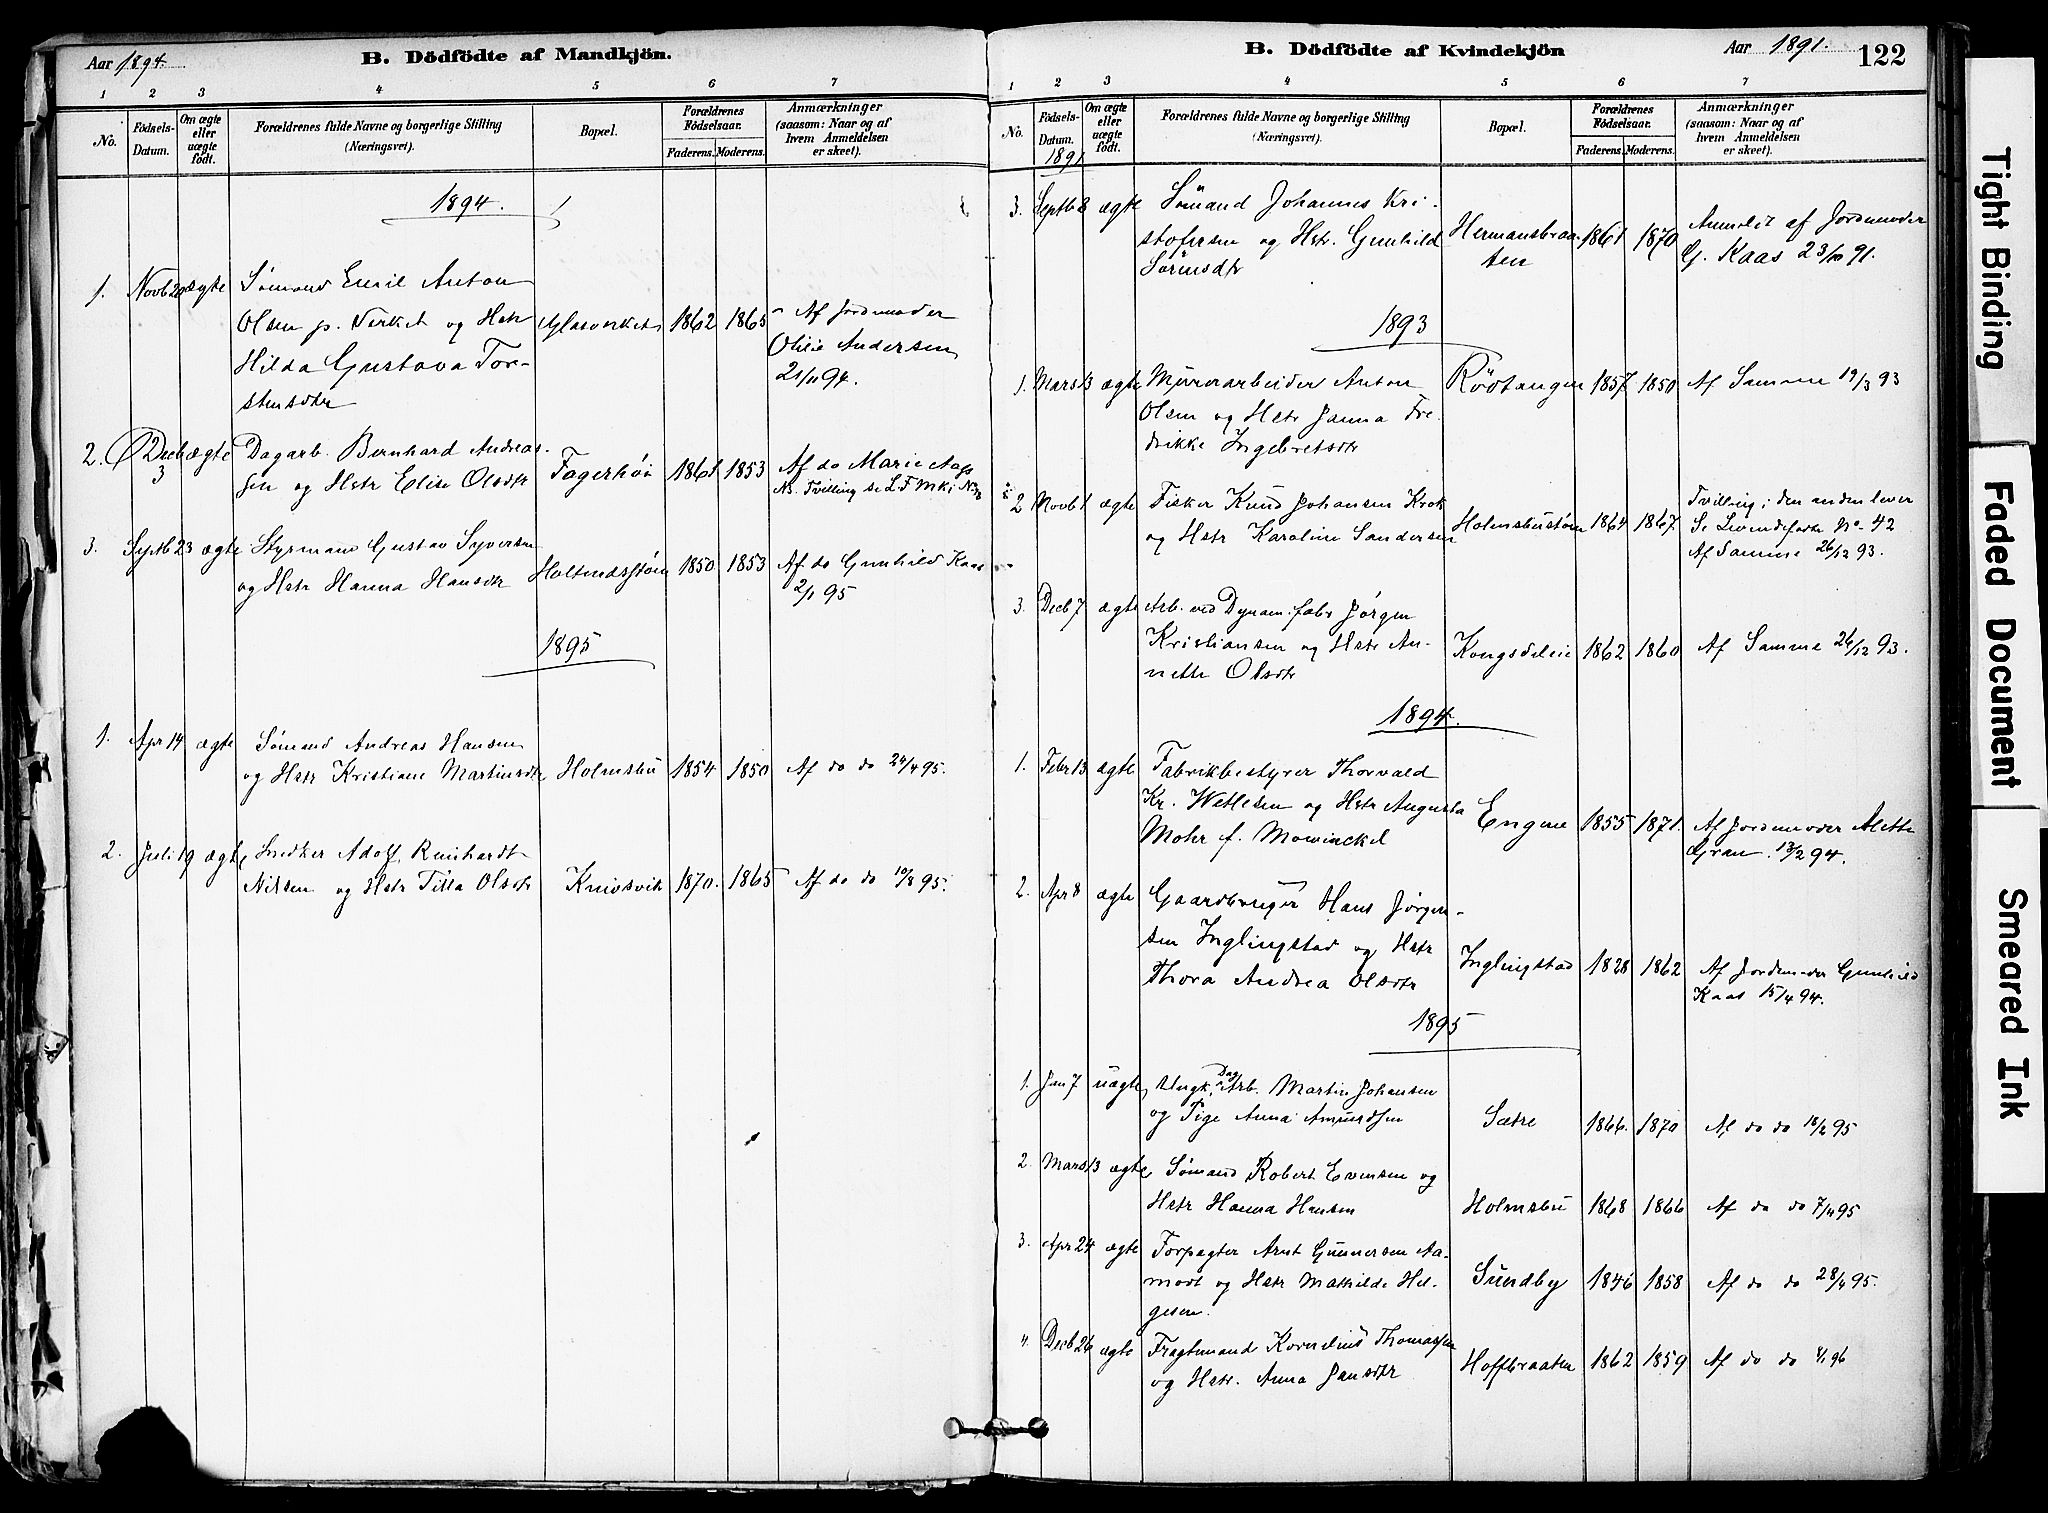 Aar 1894.
B. Dödfödte af Mandkjön.
1 2 3 4 5 6 7
No.
Födsels-
Datum.
Om ægte
eller
uægte
födt.
Forældrenes fulde Navne og borgerlige Stilling
(Næringsvei).
Bopæl.
Forældrenes
Födselsaar.
Faderens. Moderens.
Anmærkninger
(saasom: Naar og af
hvem Anmeldelsen
er skeet).
1894.
1. Novb 20 ægte Sømand Emil Anton
Olsen p. Verket og Hstr Glasverket 1862 1865 Af Jordmoder
Hilda Gustava Tor- Olilie Andersen
stensdtr 21/11 94.
2. Decb 3 ægte Dagarb. Bernhard Andreas-
sen og Hstr Elise Olsdtr Fagerhøi 1861 1853 Af do Marie Aas
Nb. Tvilling se L F Mk i No
3. Septb 23 ægte Styrmand Gustav Syversen
og Hstr Hanna Hansdtr Holtundsstøen 1850 1853 Af do Gunhild Kaas
2/1 95
1895
1. Apr 14 ægte Sømand Andreas Hansen
og Hstr Kristiane Martinsdtr Holmsbu 1854 1850 Af do do 24/4 95.
2. Juli 19 ægte Snedker Adolf Reinhardt
Nilsen og Hstr Tilla Olsdtr Knivsvik 1870. 1865 Af do do 10/8 95.
B. Dödfödte af Kvindekjön
Aar 1891.
122
1 2 3 4 5 6 7
No.
Födsels-
Datum.
Om ægte
eller
uægte
födt.
Forældrenes fulde Navne og borgerlige Stilling
(Næringsvei).
Bopæl.
Forældrenes
Födselsaar.
Faderens. Moderens.
Anmærkninger
(saasom: Naar og af
hvem Anmeldelsen
er skeet).
1891
3. Septb 8 ægte Sömand Johannes Kri-
stofersen og Hstr. Gunhild Hermansbraa- 1861 1870 Anmeldt af Jordemoder
Sörensdtr ten G. Kaas 23/10 91.
1893
1. Mars 13 ægte Murerarbeider Anton Rödtangen 1857 1850 Af Samme 19/3 93
Olsen og Hstr Janna Fre-
drikke Ingebretsdtr
2 Novb 1 ægte Fisker Knud Johansen Krok Tvilling; den anden lever
og Hstr Karoline Sandersen Holmsbustøen 1864 1867 Se Levendefødte No 42
Af Samme 26/12 93.
3. Decb 7 ægte Arb. ved Dynam. fabr Jörgen
Kristiansen og Hstr An- Kongsdeleie 1862 1860 Af Samme 26/12 93.
nette Olsdtr
1894.
1. Febr 13 ægte Fabrikbestyrer Thorvald
Kr. Wetlesen og Hstr Augusta Engene 1855 1871. Af Jordemoder Alette
Mohr f. Mowinckel Gran. 13/2 94.
2. Apr 8 ægte Gaardbruger Hans Jørgen-
sen Inglingstad og Hstr Inglingstad 1828 1862 Af Jordemoder Gunhild
Thora Andrea Olsdtr Kaas 15/4 94.
1895
1. Jan 7 uægte Ungk. Dag Arb. Martin Johansen
og Pige Anna Amundsen Sætre 1866. 1870 Af do do 18/2 95
2. Mars 13 ægte Sømand Robert Evensen og
Hstr Hanna Hansen Holmsbu 1868 1866 Af do do 7/4 95
3. Apr 24 ægte Forpagter Arnt Gunnersen Aa-
modt og Hstr Mathilde Hel- Sundby 1846 1858 Af do do 28/4 95.
gesen.
4. Decb 26 ægte Fragtemand Kornelius Thomassen
og Hstr. Anna Jansdtr Hoffbraaten 1862 1859 Af do do 96
Tight Binding
Faded Document
Smeared Ink